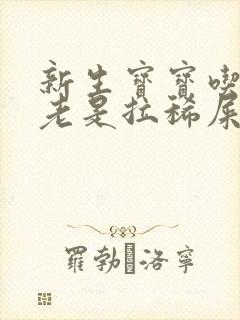 新生寶寶喫
老是拉稀屎
羅勃洛寧